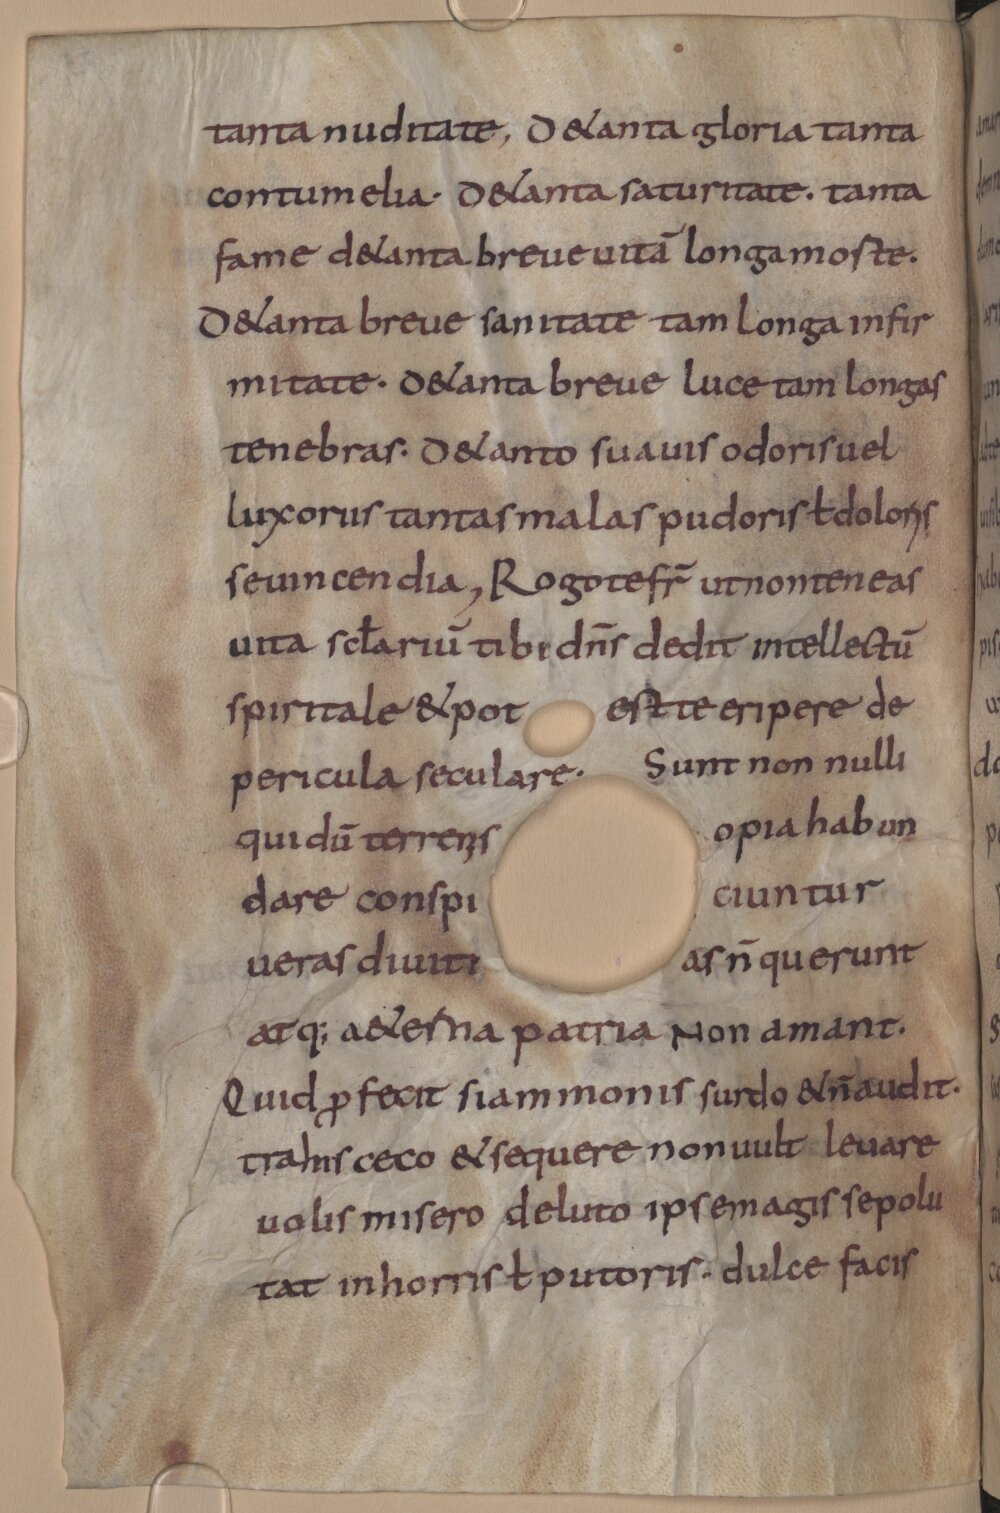 tanta nuditate, D&anta gloria tanta
contumelia· D&anta saturitate· tanta
fame d&anta breue uitā longa moste·
D&anta breue sanitate tam longa infir
mitate· D&anta breue luce tam longas
tenebras· D&anto suauis odoris uel
luxorus tantas malas pudoris ł doloris
seu incendia, Rogo te fr̄ ut non teneas
uita scł̄ariū tibi dn̄s dedit intellectū
spiritale & pot est te eripere de
pericula seculare· Sunt non nulli
qui dū terrenis opia habun
dare conspi ciuntur
ueras diuiti as n̄ querunt
atq; a&erna patria Non amant·
Quid ꝓfecit si ammonis surdo & n̄ audit·
trahis ceco & sequere non uult leuare
uolis misero de luto ipse magis se polu
tat in horris ł putoris· dulce facis